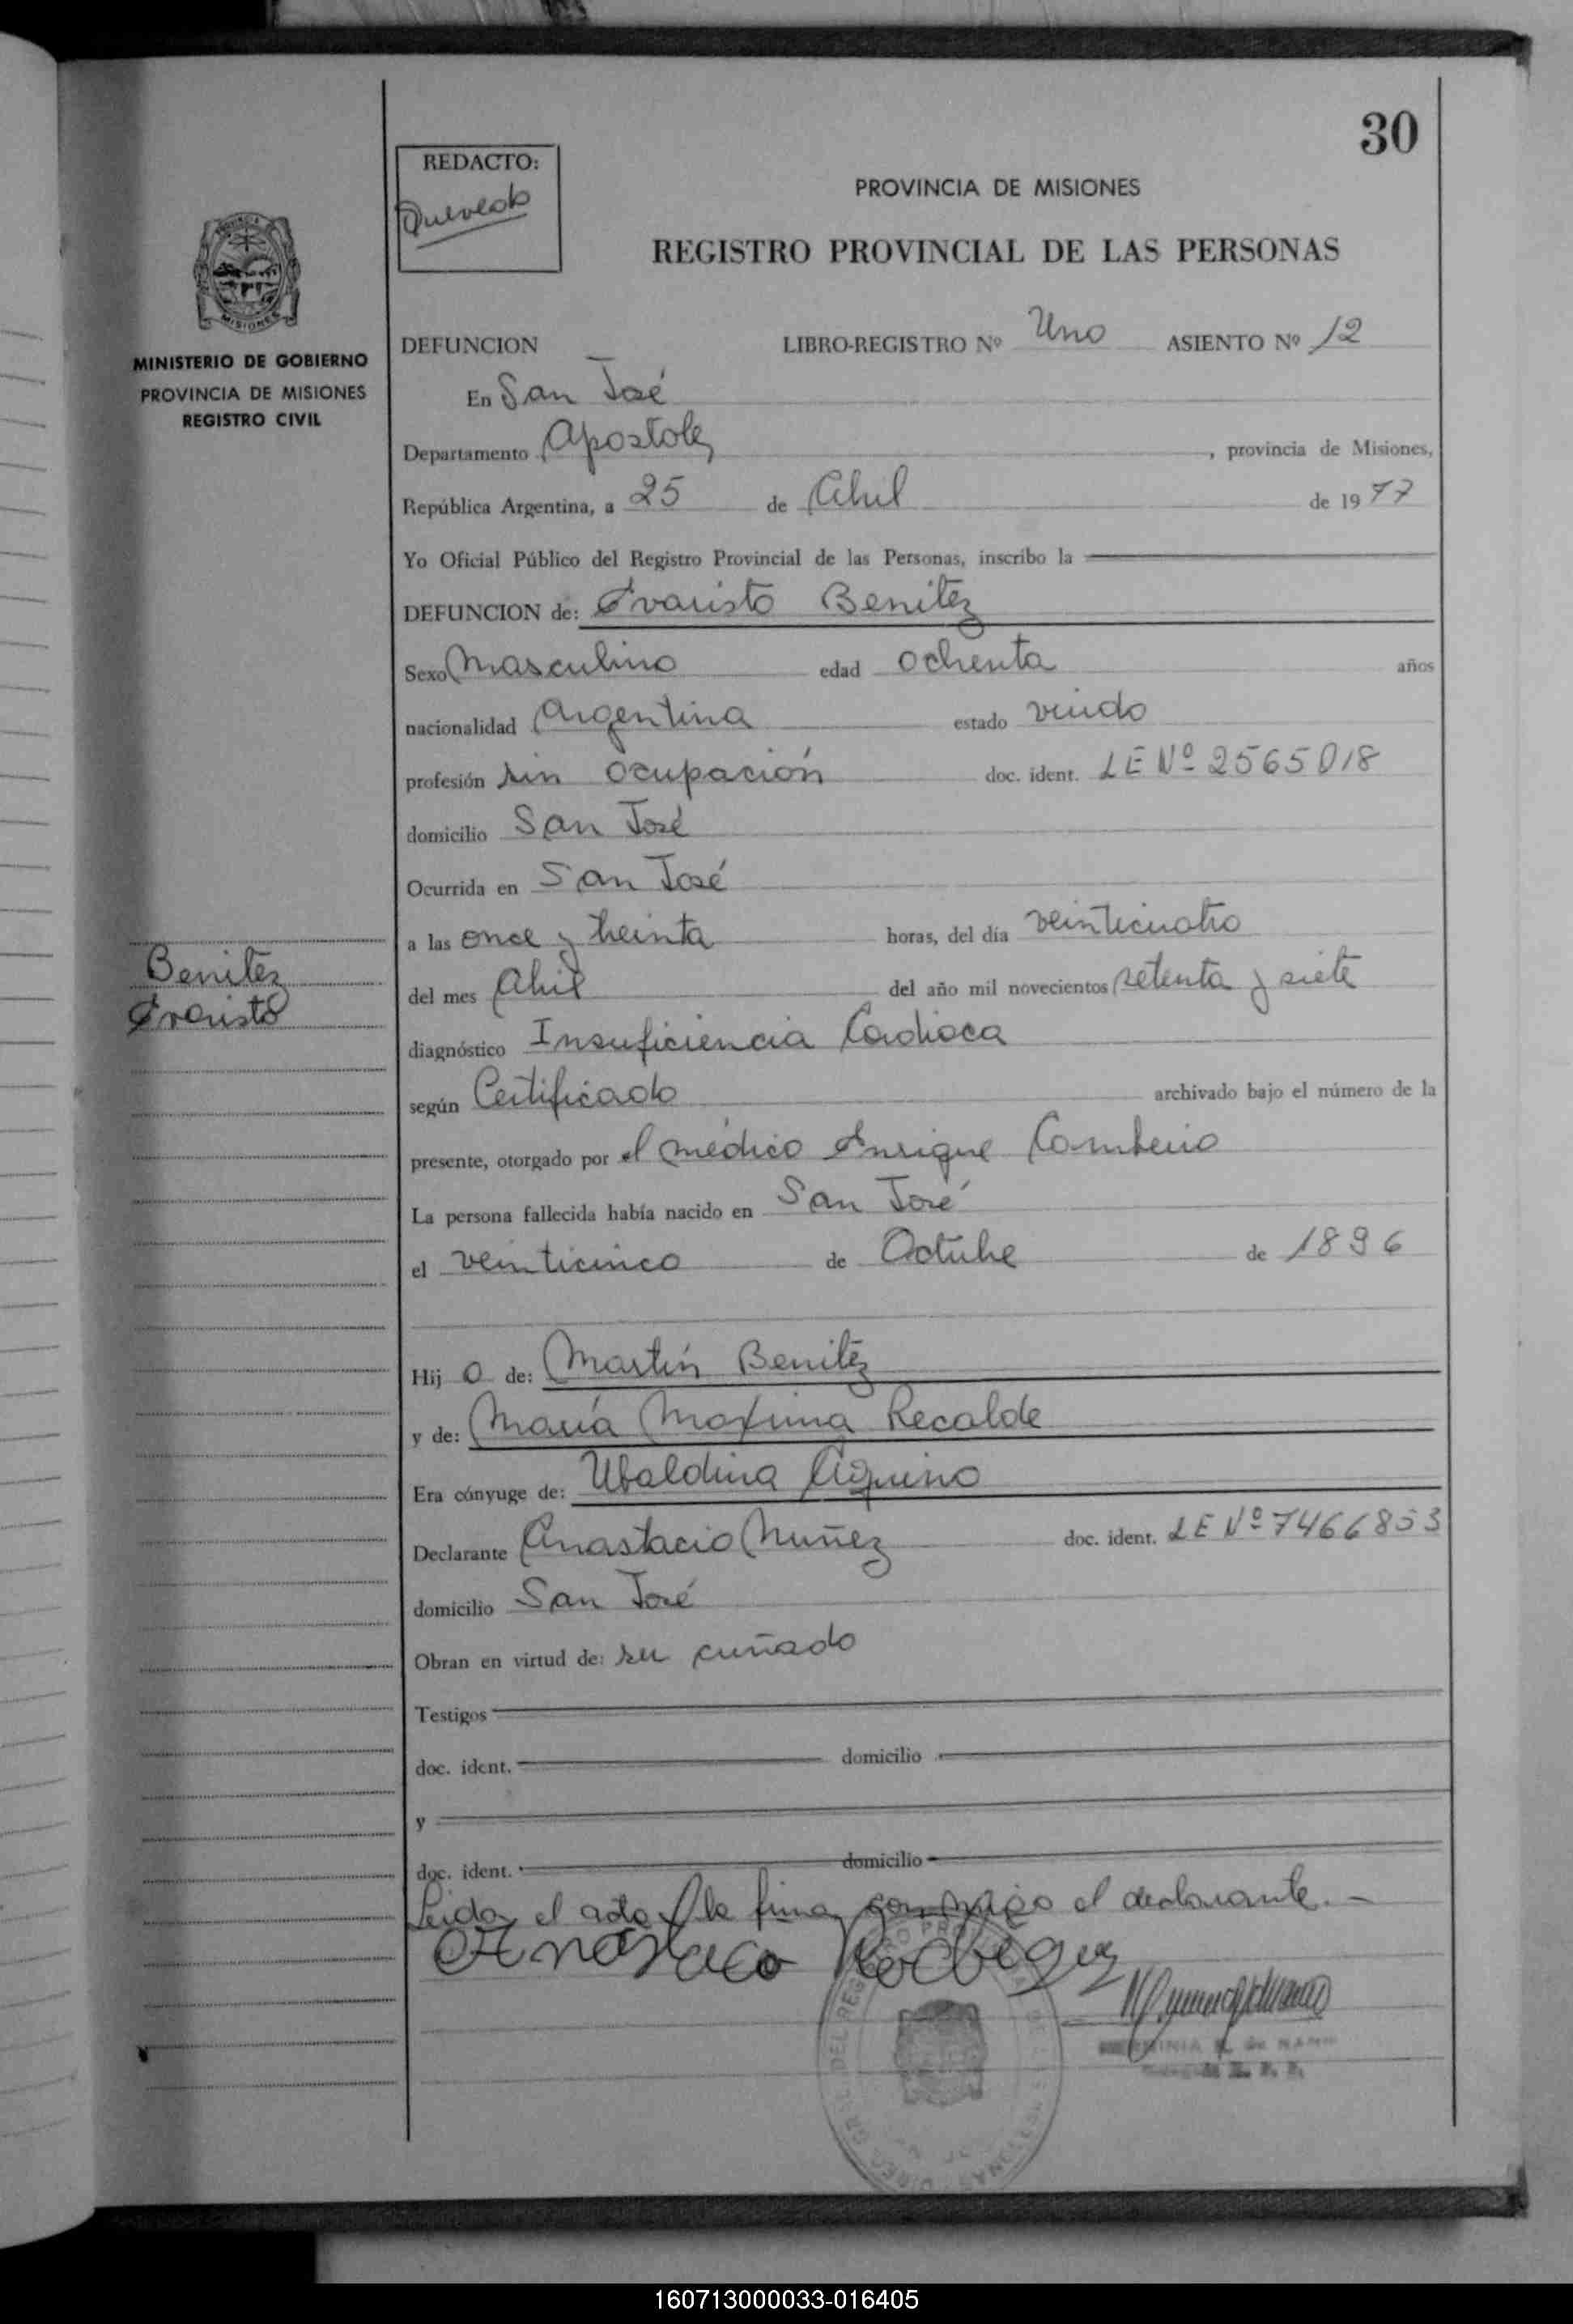 30
REDACTO:
Quevedo
PROVINCIA DE MISIONES
REGISTRO PROVINCIAL DE LAS PERSONAS
MISIONES
MINISTERIO DE GOBIERNO
PROVINCIA DE MISIONES
REGISTRO CIVIL
DEFUNCION LIBRO-REGISTRO Nº Uno ASIENTO Nº 12
En San José
Departamento Apostoles, provincia de Misiones,
República Argentina, a 25 de Abril de 1977
Yo Oficial Público del Registro Provincial de las Personas, inscribo la
DEFUNCION de: Evaristo Benitez
Sexo Masculino edad ochenta años
nacionalidad Argentina estado viudo
profesión sin ocupación doc. ident. LE Nº 2565018
domicilio San José
Ocurrida en San José
a las once y treinta horas, del día veinticuatro
Benitez
Evaristo
del mes Abril del año mil novecientos setenta y siete
diagnóstico Insuficiencia Cardiaca
según Certificado archivado bajo el número de la
presente, otorgado por el médico Enrique
La persona fallecida había nacido en San José
el veinticinco de Octubre de 1896
Hij o de: Martín Benitez
y de: María Maxima Recalde
Era cónyuge de: Ubaldina Aquino
Declarante Anastacio Nuñez doc. ident. LE Nº 7466853
domicilio San José
Obran en virtud de: su cuñado
Testigos
doc. ident. domicilio
y
doc. ident. domicilio
Leida el acta la firma conmigo el declarante.-
160713000033-016405